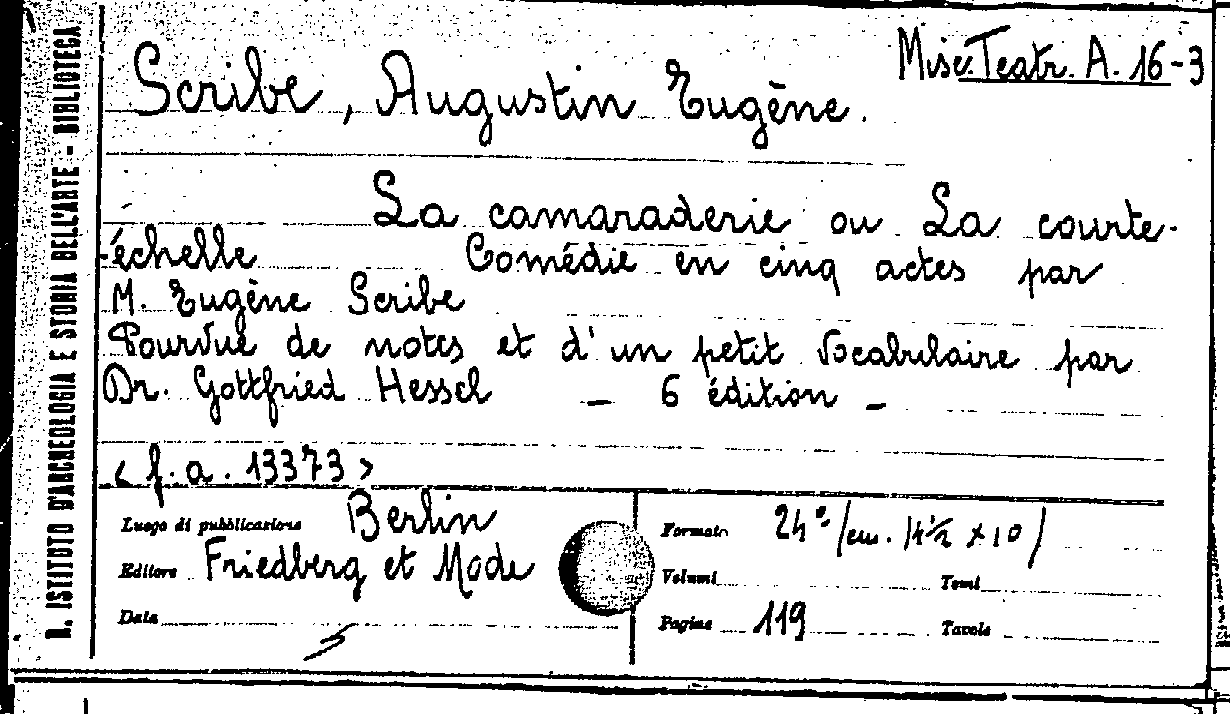 Misc. Teatr. A. 16-3
Scribe, Augustin Eugène.
La camaraderie ou La courte-
-échelle Comédie en cinq actes par
M. Eugène Scribe
Pourvue de notes et d'un petit vocabulaire par
Dr. Gottfried Hessel — 6 édition —
<f.a. 13373>
Luogo di pubblicazione Berlin
Editore Friedberg et Mode
Data
Formato 24° /cm. 14½ x 10/
Volumi Tomi
Pagine 119 Tavole
R. ISTITUTO D'ARCHEOLOGIA E STORIA DELL'ARTE - BIBLIOTECA